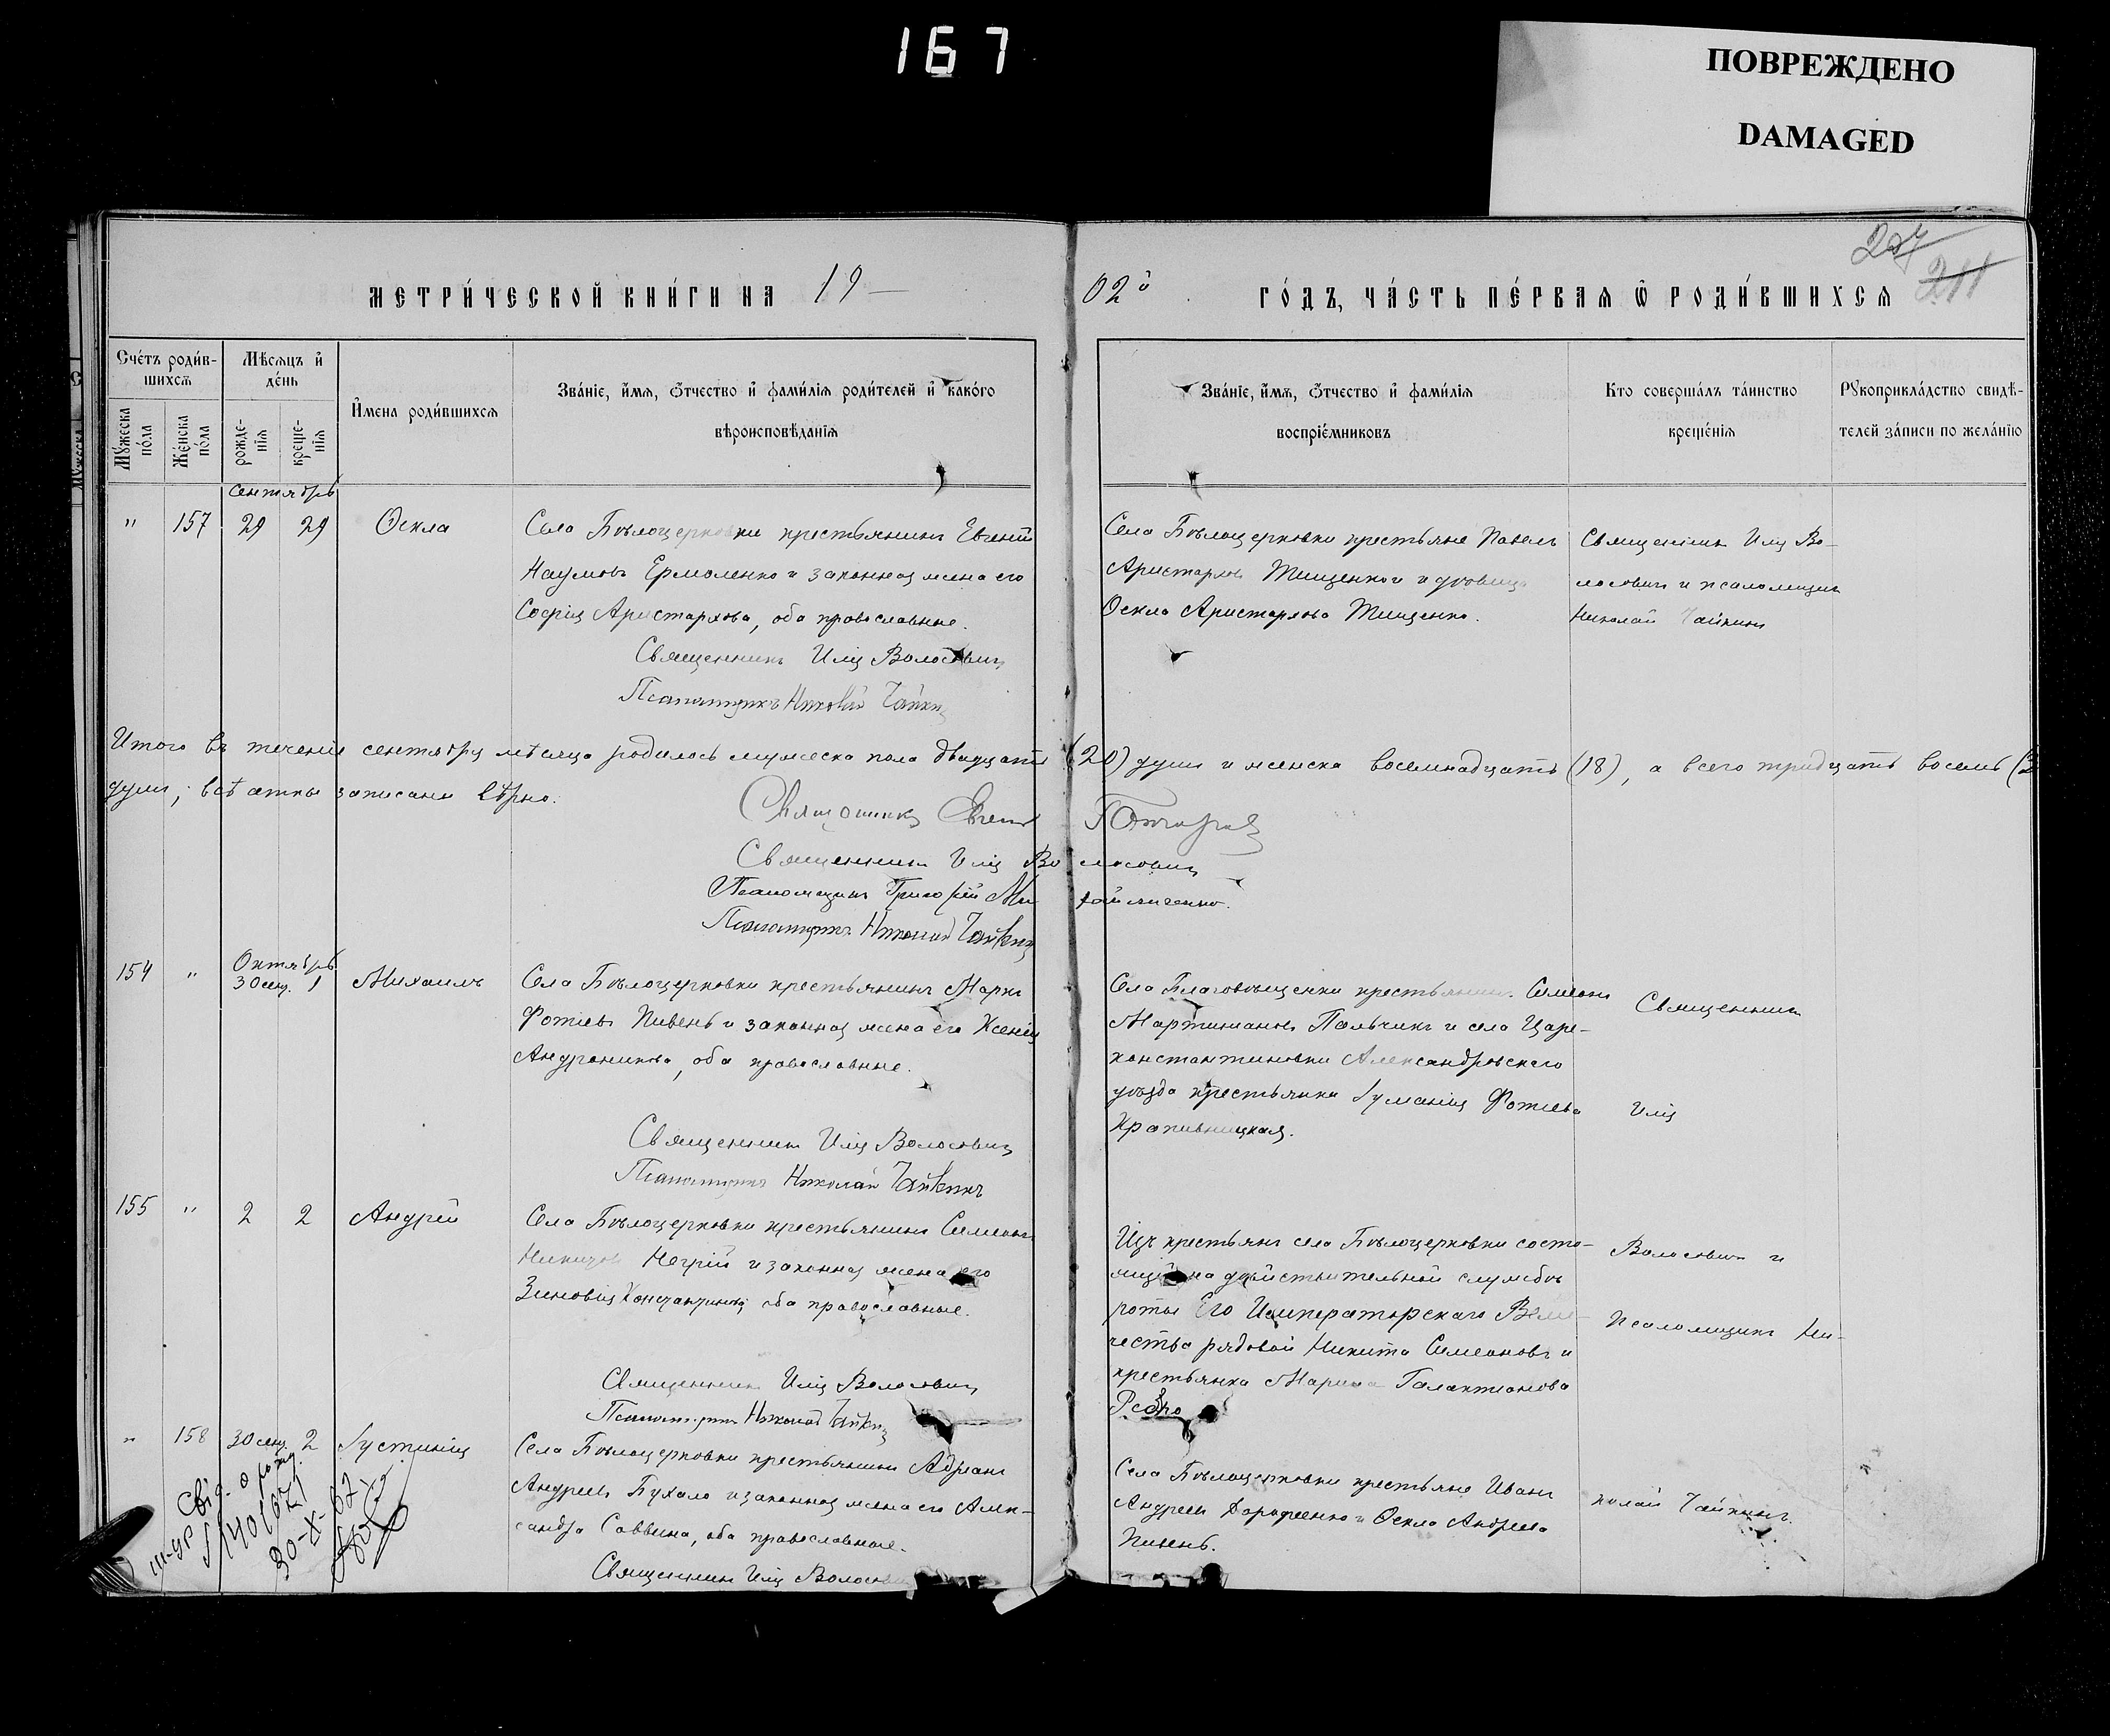 167
ПОВРЕЖДЕНО
DAMAGED
МЕТРИ́ЧЕСКОЙ КНИ́ГИ НА 19—
02й ГО́ДЪ, ЧА́СТЬ ПЕ́РВАѦ Ѽ РОДИ́ВШИХСѦ
207
211
Сче́тъ роди́в-
шихсѧ
Мѣ́сѧцъ и҆
де́нь
И҆мена роди́вшихсѧ
Зва́нїе, и҆́мѧ, ѻ҆́тчество и҆ фами́лїѧ роди́телей и҆ како́гѡ
вѣроисповѣ́данїѧ
Зва́нїе, и҆́мѧ, ѻ҆́тчество и҆ фами́лїѧ
воспрїе́мниковъ
Кто соверша́лъ та́инство
креще́нїѧ
Рꙋкоприкла́дство свидѣ́-
телей за́писи по жела́нїю
Мꙋ́жеска
по́ла
Же́нска
по́ла
рожде́-
нїѧ
креще́-
нїѧ
Сентябрь
" 157 29 29 Ѳекла
Села Бѣлоцерковки крестьянинъ Евгеній
Наумовъ Ермоленко и законная жена его
Софія Аристархова, оба православные.
Священникъ Илія Волосовичъ
Псаломщикъ Николай Чайкинъ
Села Бѣлоцерковки крестьяне Павелъ
Аристарховъ Тищенко и вдовица
Ѳекла Аристархова Тищенко.
Священникъ Илія Во-
лосовичъ и псаломщикъ
Николай Чайкинъ
Итого въ теченіе сентября мѣсяца родилось мужеска пола двадцать (20) душъ и женска восемнадцать (18), а всего тридцать восемь (3
душъ; всѣ акты записаны вѣрно.
Священникъ Евгеній
Священникъ Илія Волосовичъ
Псаломщикъ Григорій Михайличенко.
Псаломщикъ Николай Чайкинъ
Октябрь
154 " 30 сент. 1 Михаилъ
Села Бѣлоцерковки крестьянинъ Маркъ
Фотіевъ Пивень и законная жена его Ксенія
Андроникова, оба православные.
Священникъ Илія Волосовичъ
Псаломщикъ Николай Чайкинъ
Села Благовѣщенки крестьянинъ Симеонъ
Мартиніановъ Пальчикъ и села Царе-
константиновки Александровскаго
уѣзда крестьянка Іуманія Фотіева
Крапивницкая.
Священникъ
Илія
155 " 2 2 Андрей
Села Бѣлоцерковки крестьянинъ Симеонъ
Никитовъ Негрій и законная жена его
Зиновія Константинова, оба православные.
Священникъ Илія Волосовичъ
Псаломщикъ Николай Чайкинъ
Изъ крестьянъ села Бѣлоцерковки состо-
ящій на дѣйствительной службѣ
роты Его Императорскаго Вели-
чества рядовой Никита Симеоновъ и
крестьянка Марина Галактіонова
Волосовичъ и
псаломщикъ Ни-
" 158 30 сент. 2 Іустинія
Села Бѣлоцерковки крестьянинъ Адріанъ
Андреевъ Бухало и законная жена его Алек-
сандра Саввина, оба православные.
Священникъ Илія Волосовичъ
Села Бѣлоцерковки крестьяне Иванъ
Андреевъ Дорофеенко и Ѳекла Андреева
Пивень.
колай Чайкинъ.
Свід. о рожд.
III-УР №401671
30-X-67